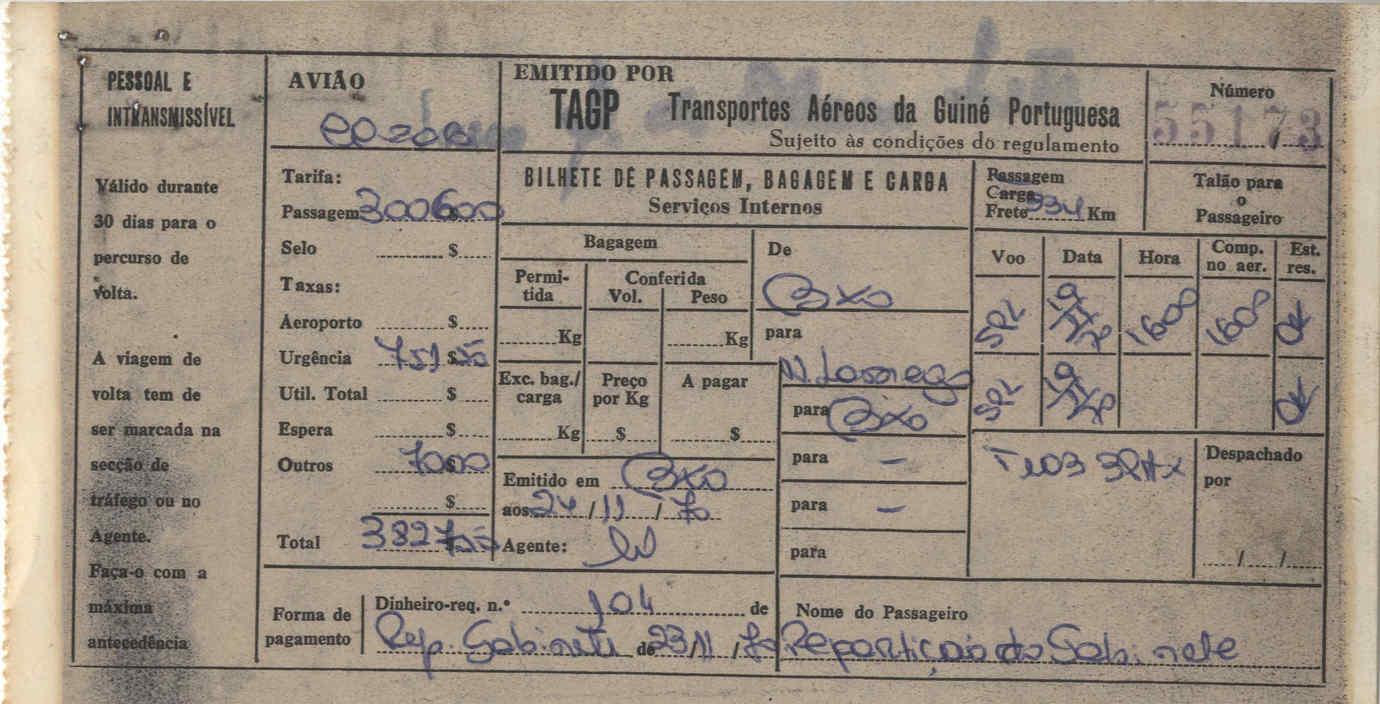 PESSOAL E
INTRANSMISSÍVEL
Válido durante
30 dias para o
percurso de
volta.
A viagem de
volta tem de
ser marcada na
secção de
tráfego ou no
Agente.
Faça-o com a
máxima
antecedência
AVIÃO
Tarifa:
Passagem 300600
Selo $
Taxas:
Aeroporto $
Urgência 751$50
Util. Total $
Espera $
Outros 7000
$
Total
Forma de
pagamento
Dinheiro-req. n.º 104 de
Rep. Gabinete de 23/11/70
EMITIDO POR
TAGP Transportes Aéreos da Guiné Portuguesa
Sujeito às condições do regulamento
BILHETE DE PASSAGEM, BAGAGEM E CARGA
Serviços Internos
Bagagem
Permi-
tida
Conferida
Vol. Peso
Kg Kg
Exc. bag./
carga
Preço
por Kg
A pagar
Kg $ $
Emitido em BXO
aos 24/11/70
Agente:
De
BXO
para
N. Lamego
para BXO
para -
para -
para
Número
55173
Passagem
Carga
Frete 334 Km
Talão para
o
Passageiro
Voo Data Hora Comp.
no aer. Est.
res.
SPL 1608 1608 OK
SPL OK
Despachado
por
/ /
Nome do Passageiro
Repartição do Gabinete